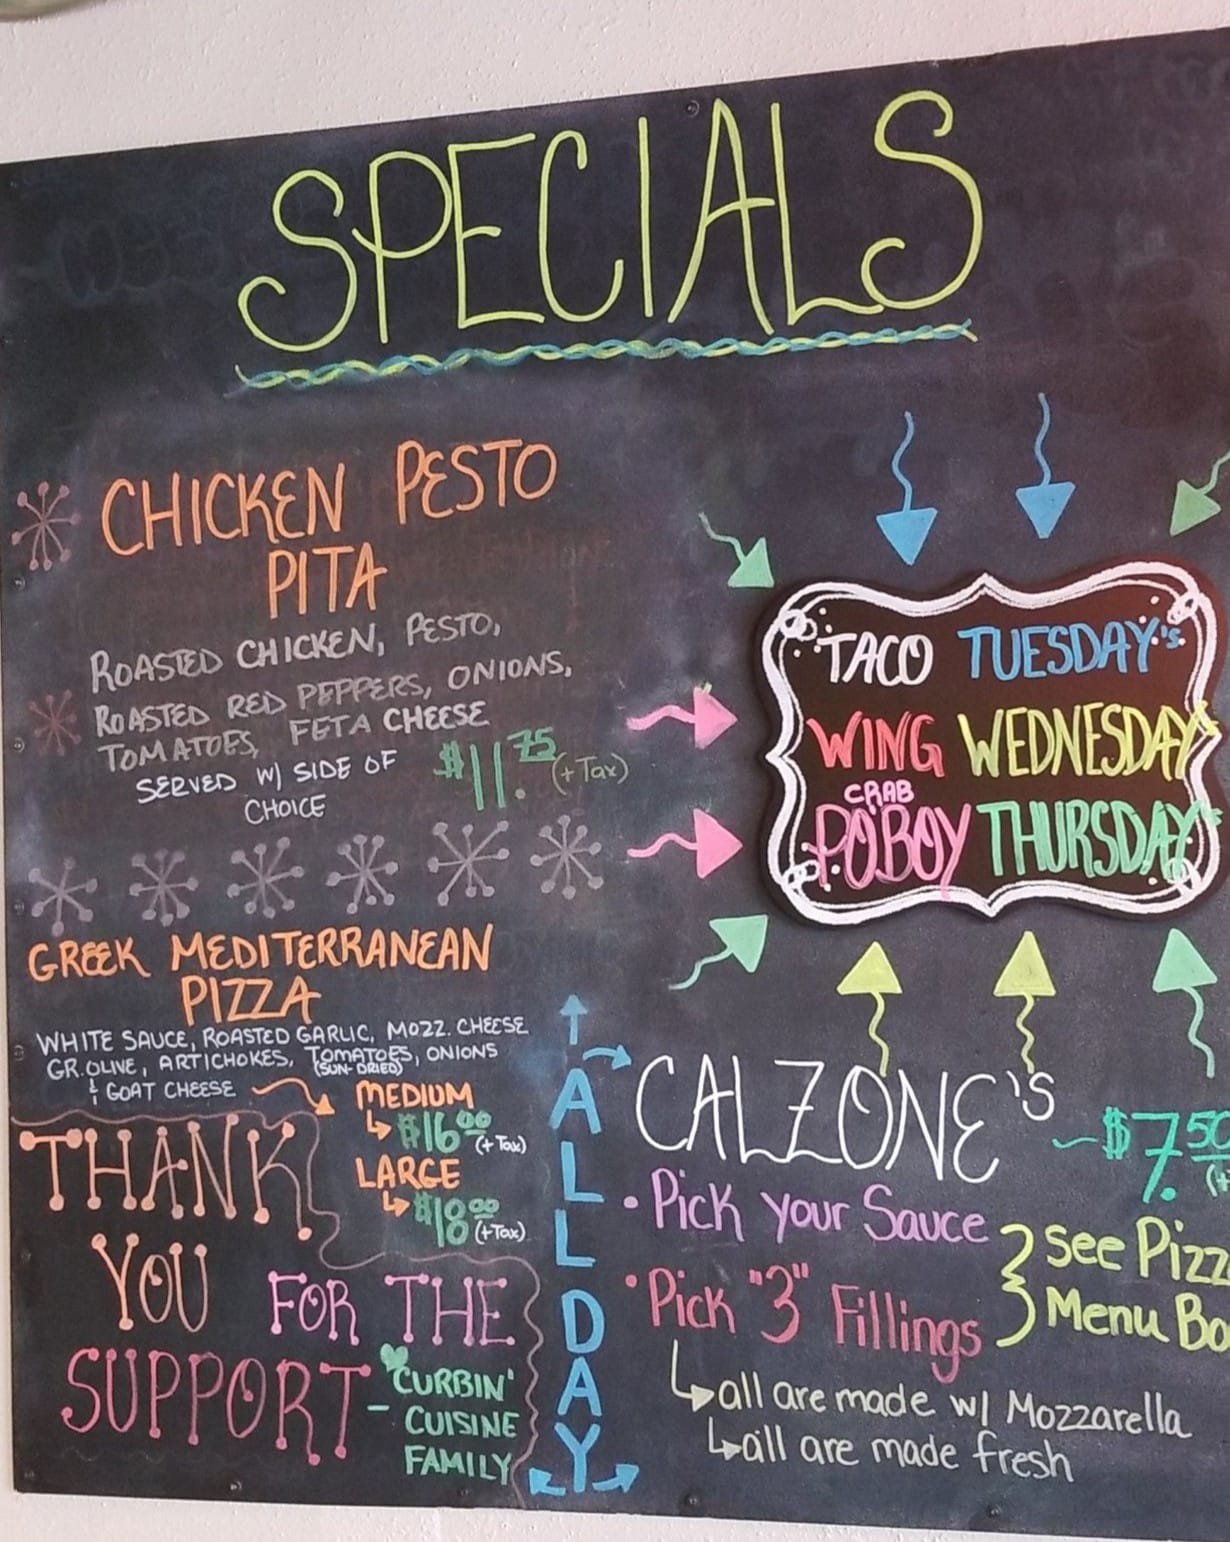 SPECIALS
CHICKEN PESTO
PITA
ROASTED CHICKEN, PESTO,
ROASTED RED PEPPERS, ONIONS,
TOMATOES, FETA CHEESE
SERVED W/ SIDE OF
CHOICE
$11.75 (+Tax)
GREEK MEDITERRANEAN
PIZZA
WHITE SAUCE, ROASTED GARLIC, MOZZ. CHEESE
GR. OLIVE, ARTICHOKES, TOMATOES, ONIONS
(SUN-DRIED)
& GOAT CHEESE
MEDIUM
$16.00 (+Tax)
LARGE
$18.00 (+Tax)
THANK
YOU FOR THE
SUPPORT
- CURBIN'
CUISINE
FAMILY
ALL DAY
TACO TUESDAY's
WING WEDNESDAY
CRAB
POBOY THURSDAY
CALZONE's
$7.50
(+
• Pick your Sauce
• Pick "3" Fillings
See Pizz
Menu Bo
all are made w/ Mozzarella
all are made fresh